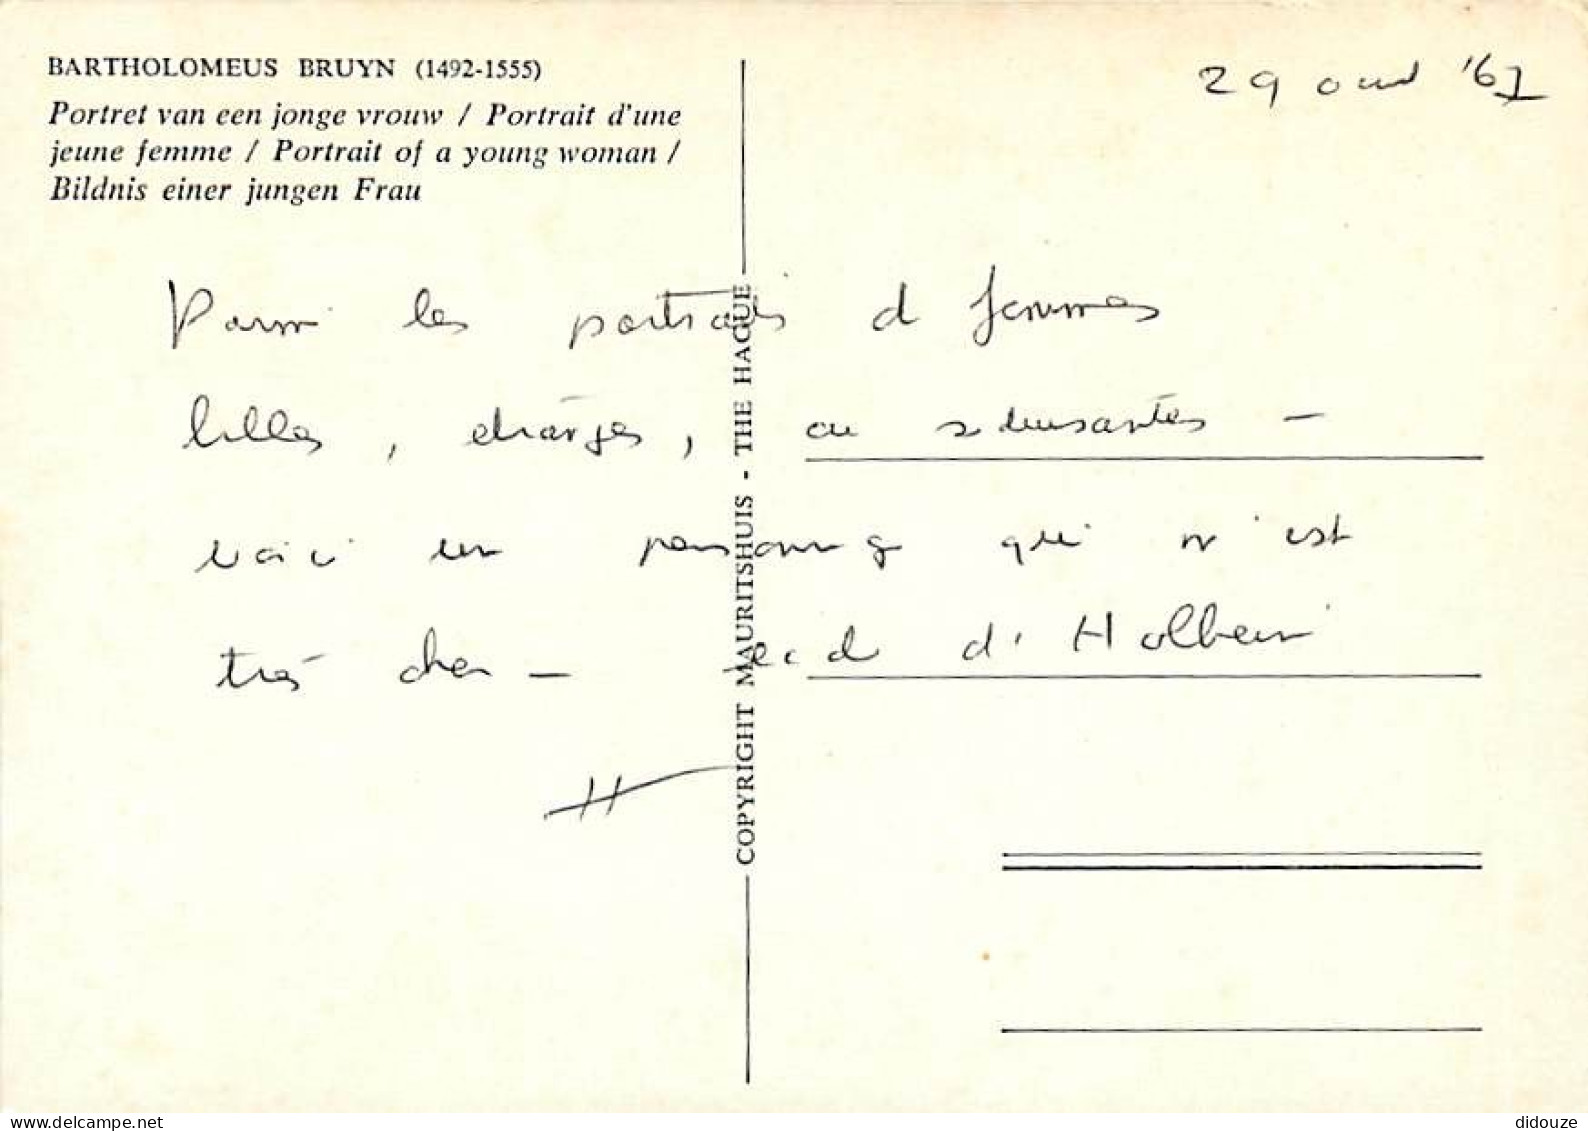 BARTHOLOMEUS BRUYN (1492-1555)
Portret van een jonge vrouw / Portrait d'une
jeune femme / Portrait of a young woman /
Bildnis einer jungen Frau
29 '61
Parmi les portraits d femmes
, ou
voici un qui n'est
très cher - d'Holbein
H
COPYRIGHT MAURITSHUIS - THE HAGUE
delcampe.net
didouze